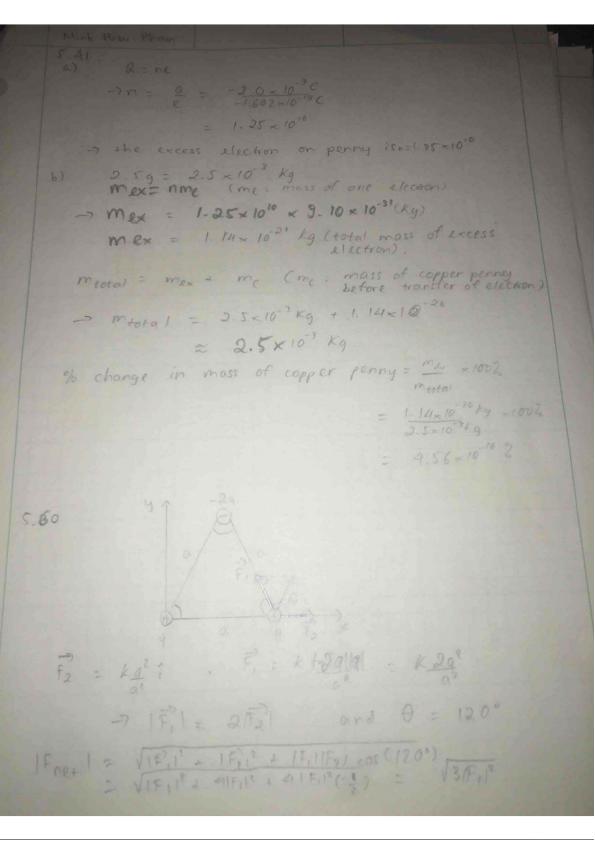 5.41.
a) Q = ne
→ n = Q/e = -2.0×10⁻⁹C / -1.602×10⁻¹⁹C
= 1.25×10¹⁰
→ the excess electron on penny is n=1.25×10¹⁰
b) 2.5g = 2.5×10⁻³ kg
mex = nme (me: mass of one electron)
→ mex = 1.25×10¹⁰ × 9.10×10⁻³¹ (kg)
mex = 1.14×10⁻²⁰ kg (total mass of excess
electron).
mtotal = mex + mc (mc: mass of copper penny
before transfer of electron)
→ mtotal = 2.5×10⁻³ kg + 1.14×10⁻²⁰
≈ 2.5×10⁻³ kg
% change in mass of copper penny = mex/mtotal ×100%
= 1.14×10⁻²⁰ kg / 2.5×10⁻³ kg ×100%
= 4.56×10⁻¹⁶ %
5.60
y
-2q
a a
F₁
q a q F₂ x
F₂ = k q²/a² î . F₁ = k |-2q||q|/a² = k 2q²/a²
→ |F₁| = 2|F₂| and θ = 120°
|Fnet| = √|F₁|² + |F₂|² + |F₁||F₂| cos(120°)